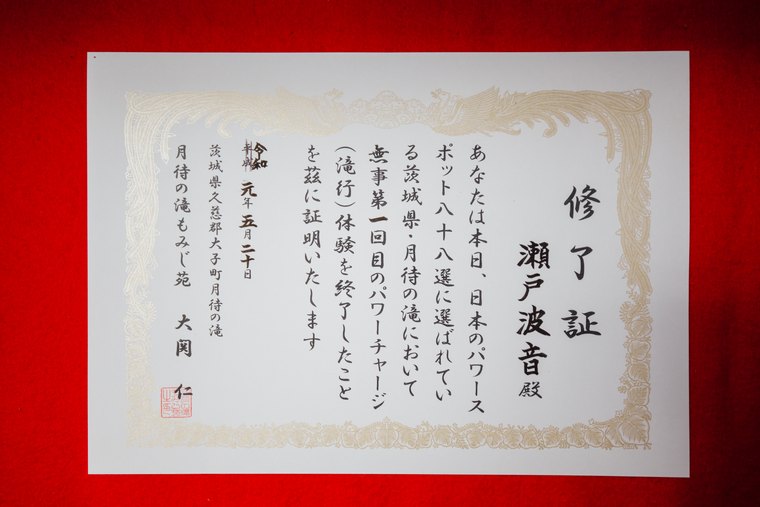 修了証
瀬戸波音 殿
あなたは本日、日本のパワース
ポット八十八選に選ばれてい
る茨城県・月待の滝において
無事第一回目のパワーチャージ
(滝行)体験を終了したこと
を茲に証明いたします
平成
令和 元年 五月 二十日
茨城県久慈郡大子町月待の滝
月待の滝もみじ苑 大関 仁